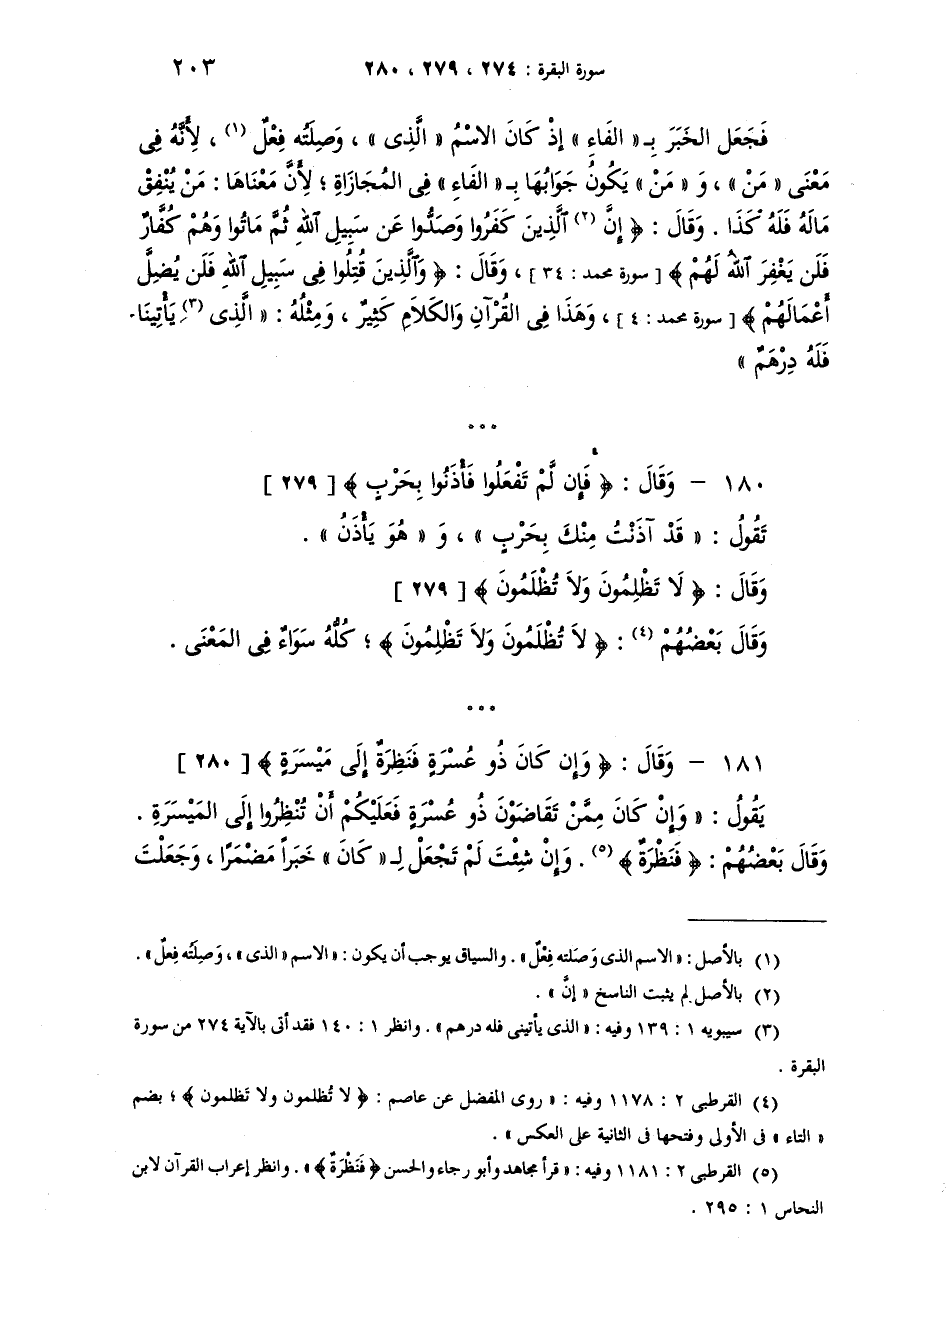 سورة البقرة : ٢٧٤ ، ٢٧٩ ، ٢٨٠ ٢٠٣
فَجَعَل الخَبَرَ بِـ « الفَاءِ » إِذْ كَانَ الاسْمُ « الَّذِى » ، وَصِلَتُه فِعْلٌ (١) ، لِأَنَّهُ فِى
مَعْنَى « مَنْ » ، وَ « مَنْ » يَكُونُ جَوَابُهَا بِـ « الفَاءِ » فِى المُجَازَاةِ ؛ لِأَنَّ مَعْنَاهَا : مَنْ يُنْفِقْ
مَالَهُ فَلَهُ كَذَا . وَقَالَ : ﴿ إِنَّ (٢) ٱلَّذِينَ كَفَرُوا وَصَدُّوا عَن سَبِيلِ ٱللهِ ثُمَّ مَاتُوا وَهُمْ كُفَّارٌ
فَلَن يَغْفِرَ ٱللهُ لَهُمْ ﴾ [ سورة محمد : ٣٤ ] ، وَقَالَ : ﴿ وَٱلَّذِينَ قُتِلُوا فِى سَبِيلِ ٱللهِ فَلَن يُضِلَّ
أَعْمَالَهُمْ ﴾ [ سورة محمد : ٤ ] ، وَهَذَا فِى القُرْآنِ وَالكَلاَمِ كَثِيرٌ ، وَمِثْلُهُ : « الَّذِى (٣) يَأْتِينَا
فَلَهُ دِرْهَمٌ »
° ° °
١٨٠ – وَقَالَ : ﴿ فَإِن لَّمْ تَفْعَلُوا فَأْذَنُوا بِحَرْبٍ ﴾ [ ٢٧٩ ]
تَقُولُ : « قَدْ آذَنْتُ مِنْكَ بِحَرْبٍ » ، وَ « هُوَ يَأْذَنُ » .
وَقَالَ : ﴿ لَا تَظْلِمُونَ وَلاَ تُظْلَمُونَ ﴾ [ ٢٧٩ ]
وَقَالَ بَعْضُهُمْ (٤) : ﴿ لاَ تُظْلَمُونَ وَلاَ تَظْلِمُونَ ﴾ ؛ كُلُّهُ سَوَاءٌ فِى المَعْنَى .
° ° °
١٨١ – وَقَالَ : ﴿ وَإِن كَانَ ذُو عُسْرَةٍ فَنَظِرَةٌ إِلَى مَيْسَرَةٍ ﴾ [ ٢٨٠ ]
يَقُولُ : « وَإِنْ كَانَ مِمَّنْ تَقَاضَوْنَ ذُو عُسْرَةٍ فَعَلَيْكُمْ أَنْ تُنْظِرُوا إِلَى المَيْسَرَةِ .
وَقَالَ بَعْضُهُمْ : ﴿ فَنَظْرَةٌ ﴾ (٥) . وَإِنْ شِئْتَ لَمْ تَجْعَلْ لِـ « كَانَ » خَبَراً مَضْمَرًا ، وَجَعَلْتَ
(١) بالأصل : « الاسم الذى وَصَلته فِعْلٌ » . والسياق يوجب أن يكون : « الاسم « الذى » ، وَصِلَتُه فِعلٌ » .
(٢) بالأصل لم يثبت الناسخ « إنَّ » .
(٣) سيبويه ١ : ١٣٩ وفيه : « الذى يأتينى فله درهم » . وانظر ١ : ١٤٠ فقد أتى بالآية ٢٧٤ من سورة
البقرة .
(٤) القرطبى ٢ : ١١٧٨ وفيه : « روى المفضل عن عاصم : ﴿ لا تُظلمون ولا تَظلمون ﴾ ؛ بضم
« التاء » فى الأولى وفتحها فى الثانية على العكس » .
(٥) القرطبى ٢ : ١١٨١ وفيه : « قرأ مجاهد وأبو رجاء والحسن ﴿ فَنَظْرَةٌ ﴾ » . وانظر إعراب القرآن لابن
النحاس ١ : ٢٩٥ .